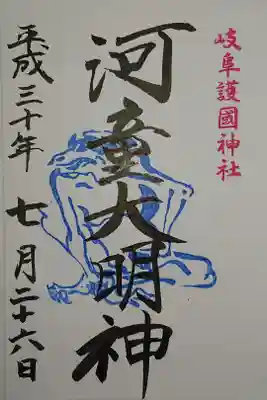 岐阜護國神社
河童大明神
平成三十年 七月二十六日